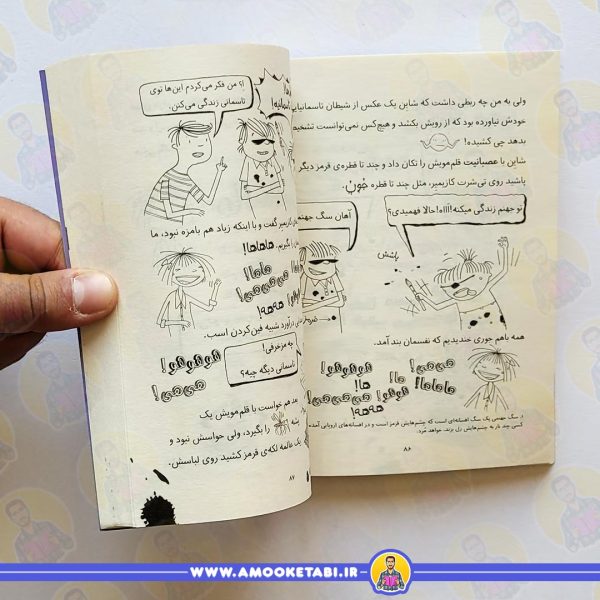 ولی به من چه ربطی داشت که شاین یک عکس از شیطان تاسمانیایی
خودش نیاورده بود که از رویش بکشد و هیچ‌کس نمی‌توانست تشخیص
بدهد چی کشیده!
شاین با عصبانیت قلم‌مویش را تکان داد و چند تا قطره‌ی قرمز دیگر
پاشید روی تی‌شرت کازیمیر، مثل چند تا قطره خون.
تو جهنم زندگی میکنه! آااه! حالا فهمیدی؟
آهان سگ جهنم
پاشش
همه باهم جوری خندیدیم که نفسمان بند آمد.
هی‌هی!
هوهوهو!
ها!
هاهاها!
هوهو!
ها!
هی‌هی‌هی!
هه‌هه!
۱. سگ جهنمی یک سگ افسانه‌ای است که چشم‌هایش قرمز است و در افسانه‌های اروپایی آمده
کسی چند بار به چشم‌هایش زل بزند، خواهد مُرد.
۸۶
اِ؟ من فکر می‌کردم این‌ها توی
تاسمانی زندگی می‌کنن.
کازیمیر گفت و با اینکه زیاد هم بامزه نبود، ما
بگیریم.
هاهاها!
هاها!
هی‌هی‌هی!
هوهو!
هه‌هه!
درآورد شبیه فین‌کردن است.
چه مزخرفی!
تاسمانی دیگه چیه؟
هوهوهو!
هی‌هی!
بعد هم خواست با قلم‌مویش یک
پشه را بگیرد، ولی حواسش نبود و
یک عالمه لکه‌ی قرمز کشید روی لباسش.
۸۷
WWW.AMOOKETABI.IR